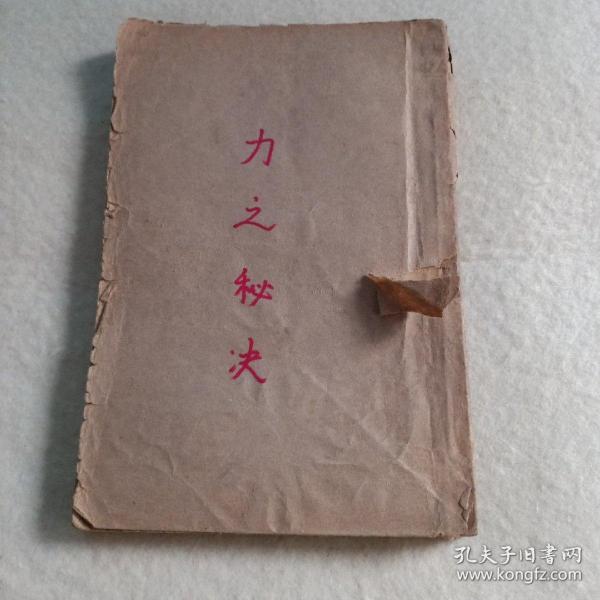 力之秘决
孔夫子旧書网
www.kongfz.com